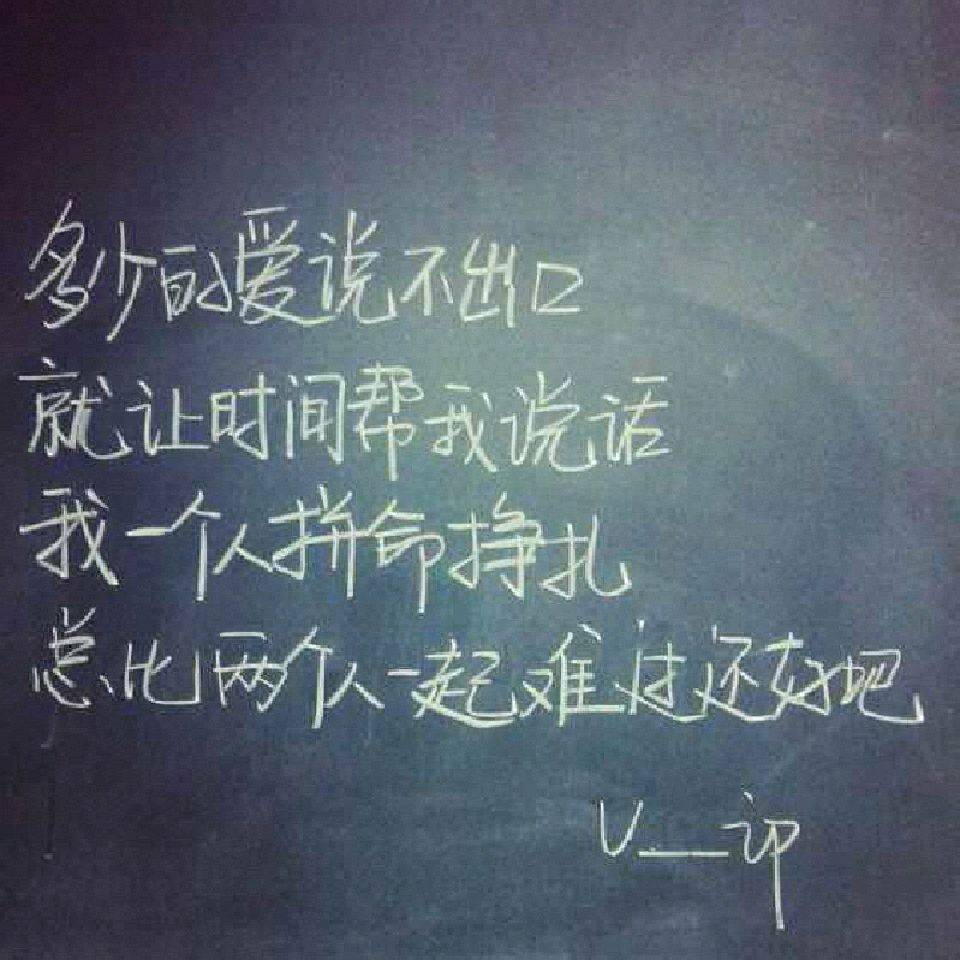 多少的爱说不出口
就让时间帮我说话
我一个人拼命挣扎
总比两个人一起难过还好吧
V__